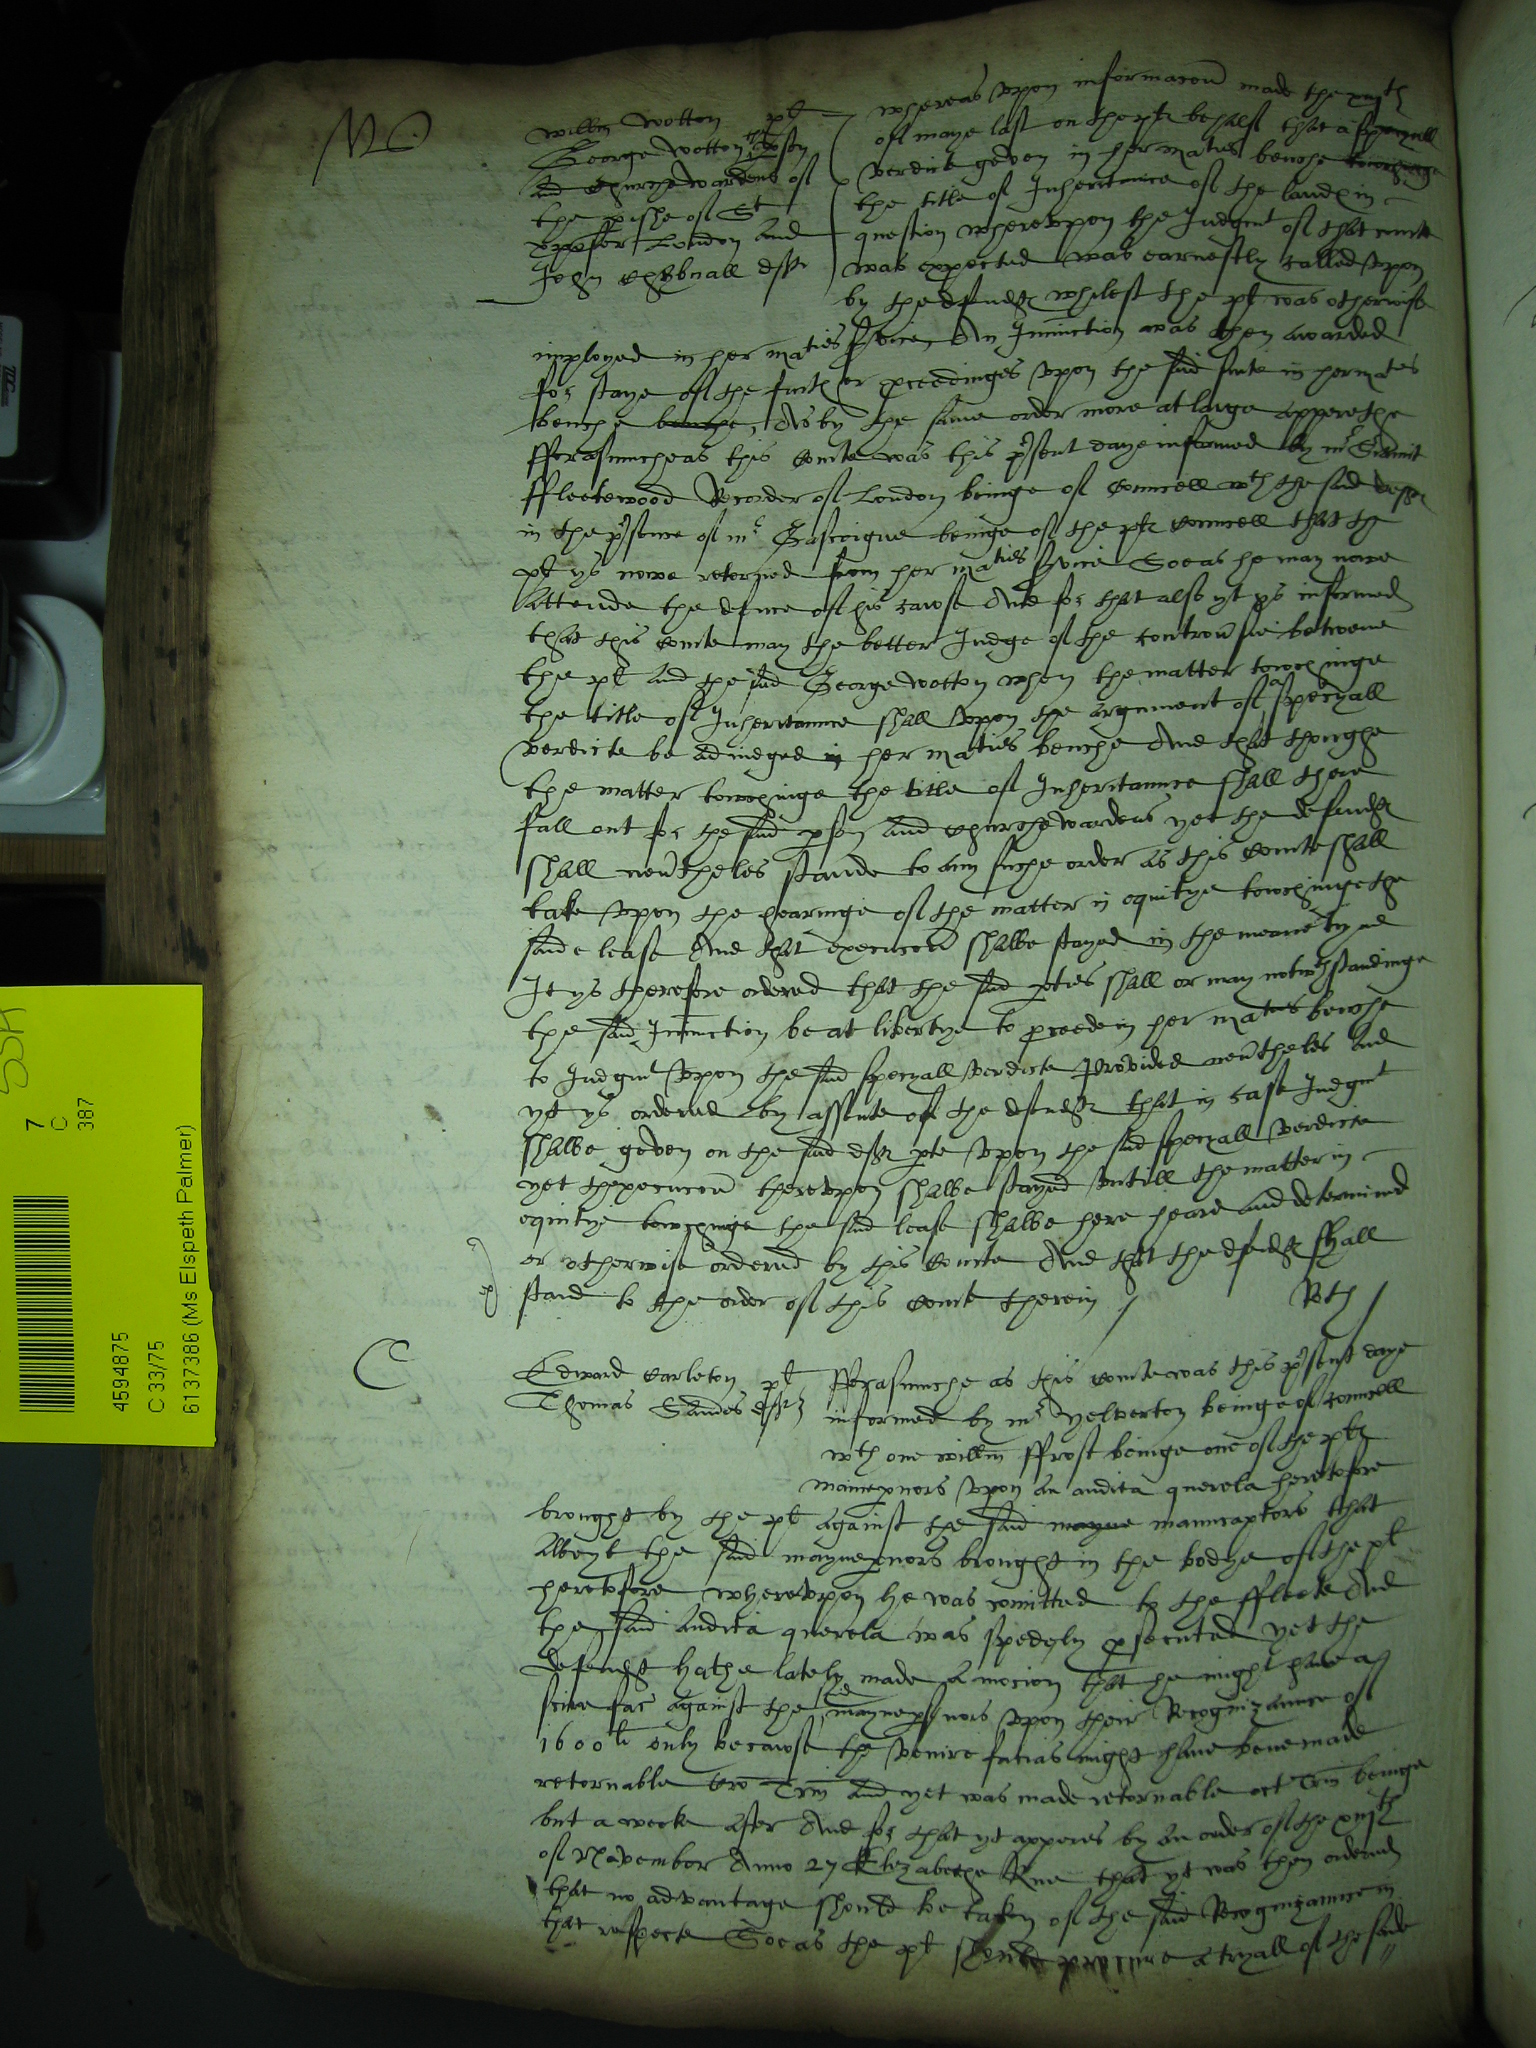 Willm Wotton plt
George Wotton the pson
and Churchewardens of
the pishe of St
London and
John Chubnall defts
Whereas upon informacon made the xiijth
of Maye last on the plts behalf that a speciall
verdict geven in her Maties benche towchinge
the title of Inheritaunce of the landes in
question whereupon the Judgmt of that courte
was expected was earnestly called upon
by the defendts whilest the plt was otherwise
imployed in her Maties svice, An Iniunction was then awarded
for staye of the further pceedinges upon the said suite in her Mates
benche benche, As by the same order more at large apperethe
fforasmuche as this Courte was this psent daye informed by mr Siaunt
ffleetewood Recorder of London beinge of Councell wth the said defts
in the psence of mr Gascoigne beinge of the plts Councell that the
plt ys nowe retorned from her Maties svice Soe as he may nowe
attende the defence of his cawse And for that also yt ys informed
that this Courte may the better Judge of the controusie betweene
the plt and the said George Wotton when the matter towchinge
the title of Inheritaunce shall upon the argument of a speciall
verdicte be adiudged in her Maties benche And that thoughe
the matter towchinge the title of Inheritaunce shall there
fall out for the said pson and Churchewardens yet the defendts
shall neutheles stande to any suche order as this Courte shall
take upon the hearinge of the matter in equitye towchinge the
saide lease And that execucon shalbe stayed in the meane tyme
It ys therefore ordered that the said pties shall or may notwthstandinge
the said Iniunction be at libertye to pceede in her Maties benche
to Judgmt upon the said speciall verdicte Provided neutheles and
yt ys ordered by assente of the defendts that in case Judgmt
shalbe geven on the said defts pte upon the said speciall verdicte
yet thexecucon thereupon shalbe stayed untill the matter in
equitye towchinge the said lease shalbe here heard and determined
or otherwise ordered by this Courte And that the defendts shall
stand to the order of this Courte therein / Rth /
C
Edward Carleton plt
Thomas Sandes deft
fforasmuche as this Courte was this psent daye
informed by mr Yelverton beinge of Councell
wth one Willm ffrost beinge one of the plts
mainepnors upon an audita querela heretofore
brought by the plt against the said mayne manucaptors that
albeyt the said maynepnors brought in the bodye of the plt
heretofore whereupon he was comitted to the ffleete And
the said audita querela was spedely psecuted yet the
defendt hathe lately made a mocion that he might have a
scire fac against the said maynepnors upon their Recognizaunce of
1600li only because the venire facias might have bene made
retornable Cro Trin and yet was made retornable oct Trin beinge
but a weeke after And for that yt apperes by an order of the xvijth
of November Anno 27 Elezabethe Rne that yt was then ordered
that no advantage should be taken of the said Recognizaunce in
that respecte Soe as the plt should procure a tryall of the saide
4594875
C 33/75
6137386 (Ms Elspeth Palmer)
7
C
387